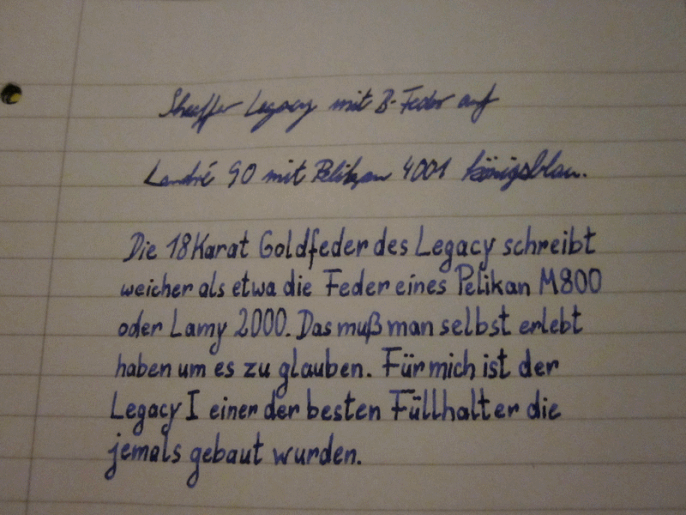 Sheaffer Legacy mit B-Feder auf
Landré 90 mit Pelikan 4001 königsblau.
Die 18Karat Goldfeder des Legacy schreibt
weicher als etwa die Feder eines Pelikan M800
oder Lamy 2000. Das muß man selbst erlebt
haben um es zu glauben. Für mich ist der
Legacy I einer der besten Füllhalter die
jemals gebaut wurden.